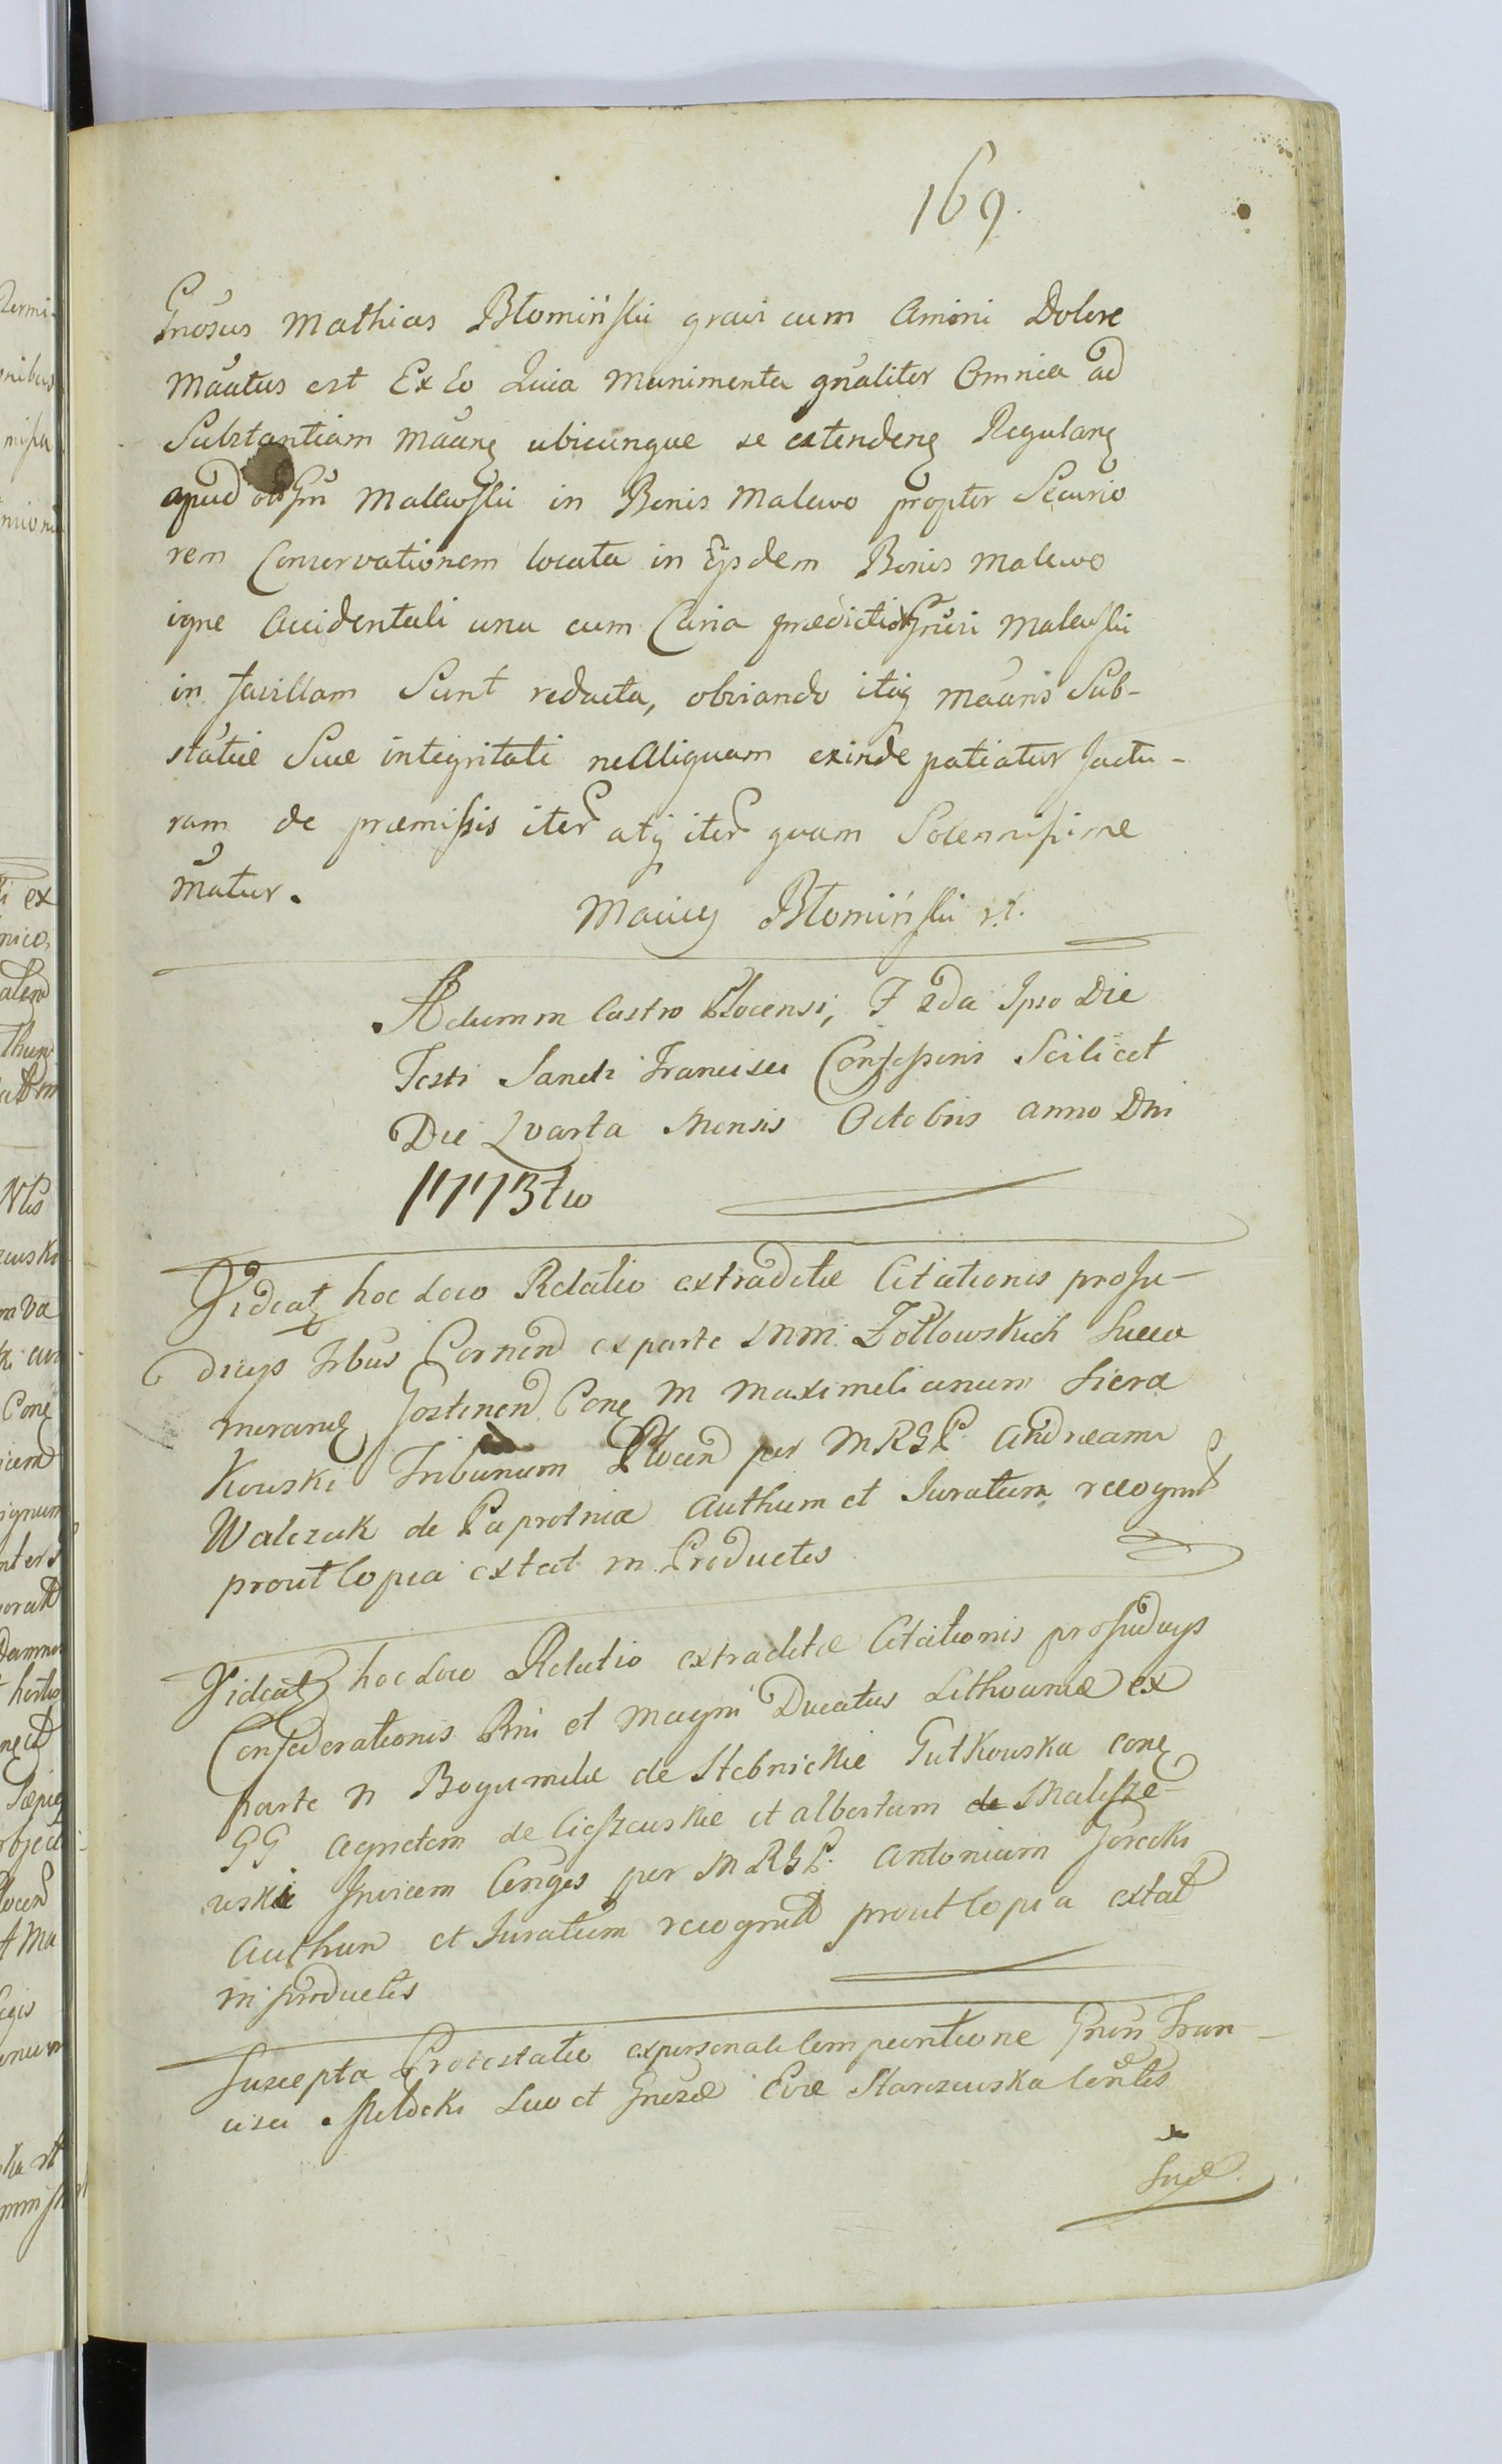 169.
Gnosus Mathias Błomiński gravi cum Animi Dolore
Mãtus est Ex Eo Quia Munimenta gnãliter Omnia ad
Substantiam Mãnẽ ubicunque se extendenẽ Regulanẽ
apud Gñ Malewski in Bonis Malewo propter Securio
rem Conservationem locata in Ejsdem Bonis Malewo
igne Accidentali una cum Curia prædicti Gnosi Malewski
in favillam Sunt redacta, obviando itaq Mãnis Sub-
stãtiæ Suæ integritati ne Aliquam exinde patiatur Jactu-
ram de præmissis iter atq iter quam Solennissime
Mãtur.
Maciey Błomiński
Actum in Castro Plocensi, F 2da Ipso Die
Festi Sancti Francisci Confessoris Scilicet
Die Quarta Mensis Octobris Anno Dni
1773tio
Videat hoc Loco Relatio extraditæ Citationis pro Ju-
dicys Trbus Cernen ex parte MM. Zołtowskich Succa
meranẽ Gostinen Conẽ M Maximilianum Siera
kowski Tribunum Plocen per MRGP. Andream
Walczak de Paprotnia Authum et Juratum recognit
prout Copia extat in Productis
Videat hoc Loco Relatio extraditæ Citationis pro Judicys
Confœderationis Rni et Magni Ducatus Lithvaniæ ex
parte M Bogumilæ de Stebnickie Gutkowska conẽ
GG Agnetem de Cieszewskie et Albertum de Malesze-
wski Invicem Conges per MRGP. Antonium Gorecki
Authum et Juratum recognit prout Copia extat
in productis
Suscepta Protestatio ex personali Comparitione Gnosi Fran-
cisci Mełdcki Suo et Gnosæ Evæ Starczewska Contlis
Suæ.